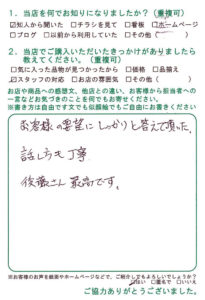 1. 当店を何でお知りになりましたか？（重複可）
☑知人から聞いた □チラシを見て □看板 □ホームページ
□ブログ □以前から利用していた □その他（　　　）
2. 当店でご購入いただいたきっかけがありましたら
教えてください。（重複可）
□気に入った品物が見つかったから □価格 □品揃え
☑スタッフの対応 □お店の雰囲気 □その他（　　　）
お店や商品への感想、他店との違い、お客様から担当者への
一言などお気づきのことを何でもお寄せください。
※書き方は自由です文でも似顔絵でもご自由にお書きください
お客様の要望にしっかりと答えて頂いた。
話し方も丁寧
後藤さん 最高です。
※お客様のお声を紙面やホームページなどで、ご紹介してもよろしいでしょうか？
☑はい □匿名で □いいえ
ご協力ありがとうございました。